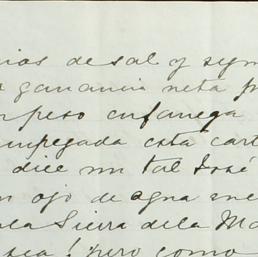 de sal y
ganancia neta
peso en fanega
empegada esta cart
dice un tal José
ojo de agua
la Sierra de la Ma
sea! pero como